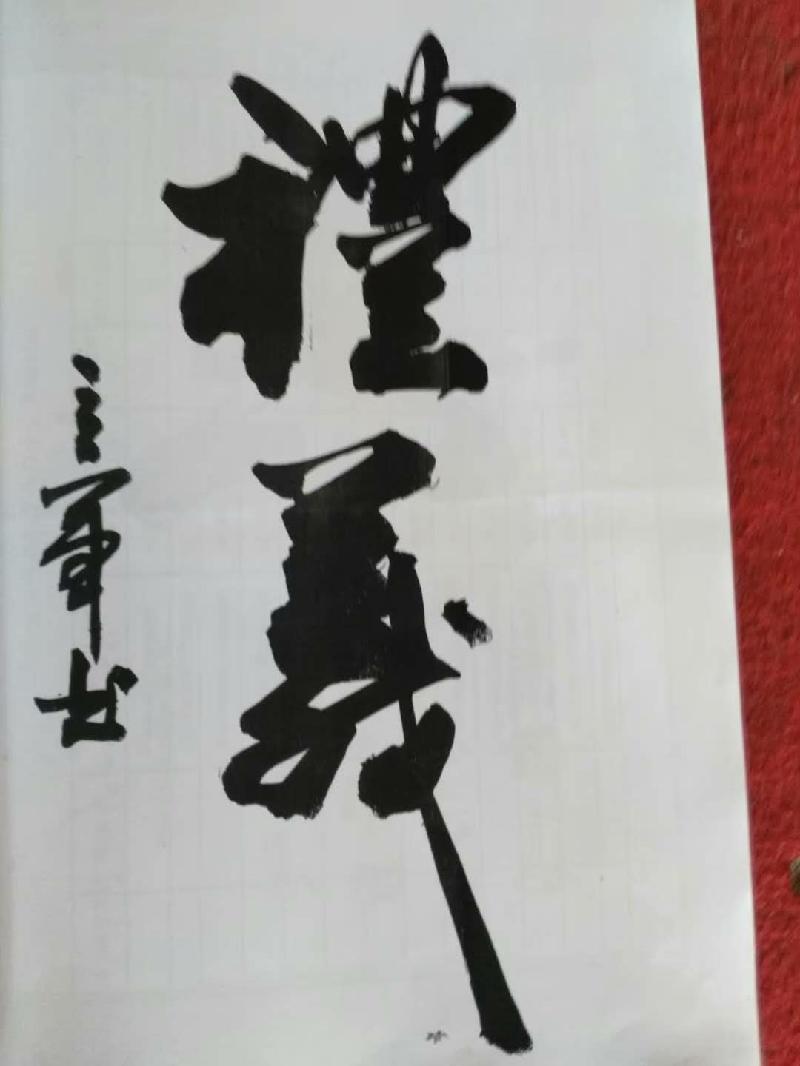 禮義
三軍书